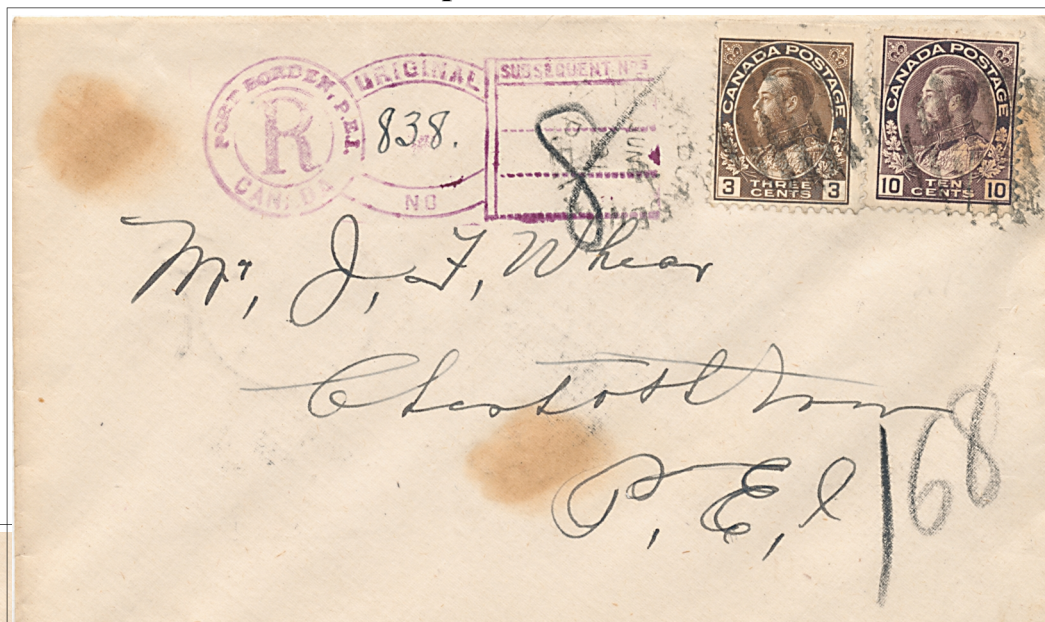 PORT BORDEN, P.E.I.
R
CANADA
ORIGINAL
838.
NO
SUBSEQUENT NOS
8
CANADA POSTAGE
3 THREE CENTS 3
CANADA POSTAGE
10 TEN CENTS 10
Mr, J, F, Whear
Charlottetown
P, E, I
168